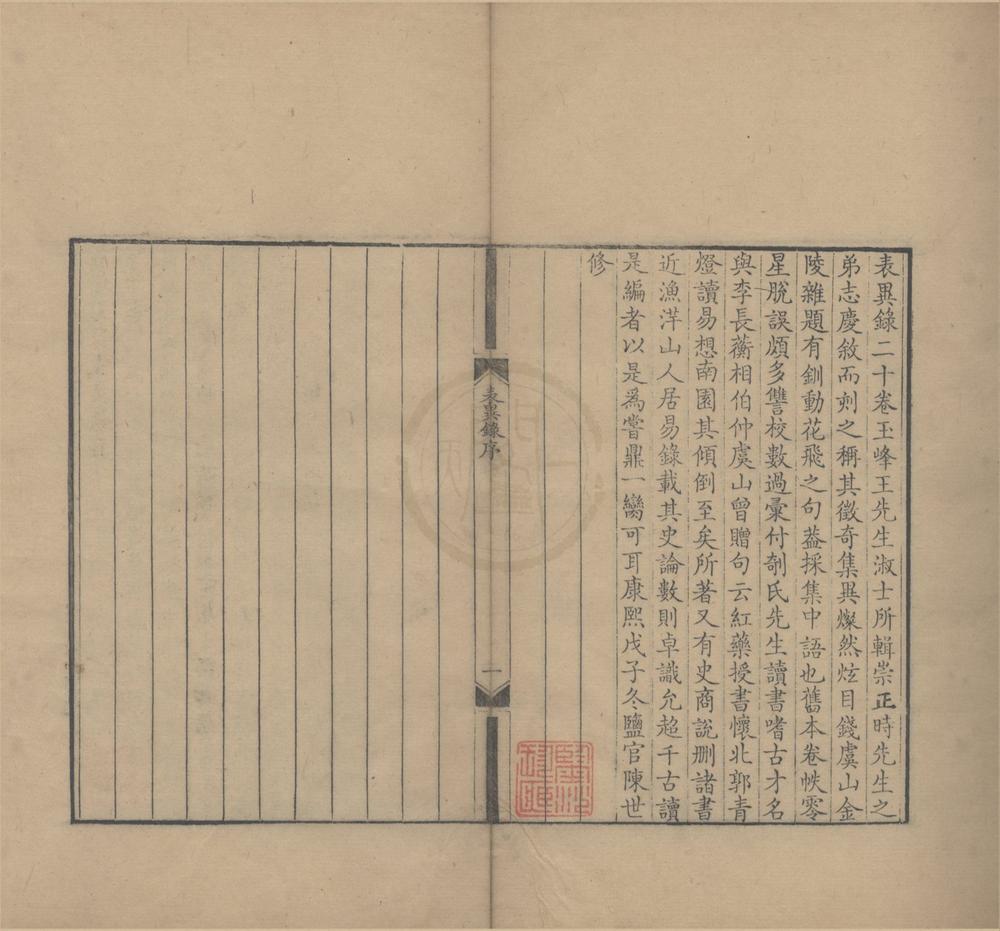 表異錄二十卷玉峰王先生淑士所輯崇正時先生之
弟志慶敘而刻之稱其徵奇集異燦然炫目錢虞山金
陵雜題有釧動花飛之句葢採集中語也舊本卷帙零
星脫誤頗多讐校數過彙付剞氏先生讀書嗜古才名
與李長蘅相伯仲虞山曾贈句云紅藥授書懷北郭青
燈讀易想南園其傾倒至矣所著又有史商說刪諸書
近漁洋山人居易錄載其史論數則卓識允超千古讀
是編者以是爲嘗鼎一臠可耳康熙戊子冬鹽官陳世
修
表異錄序
一